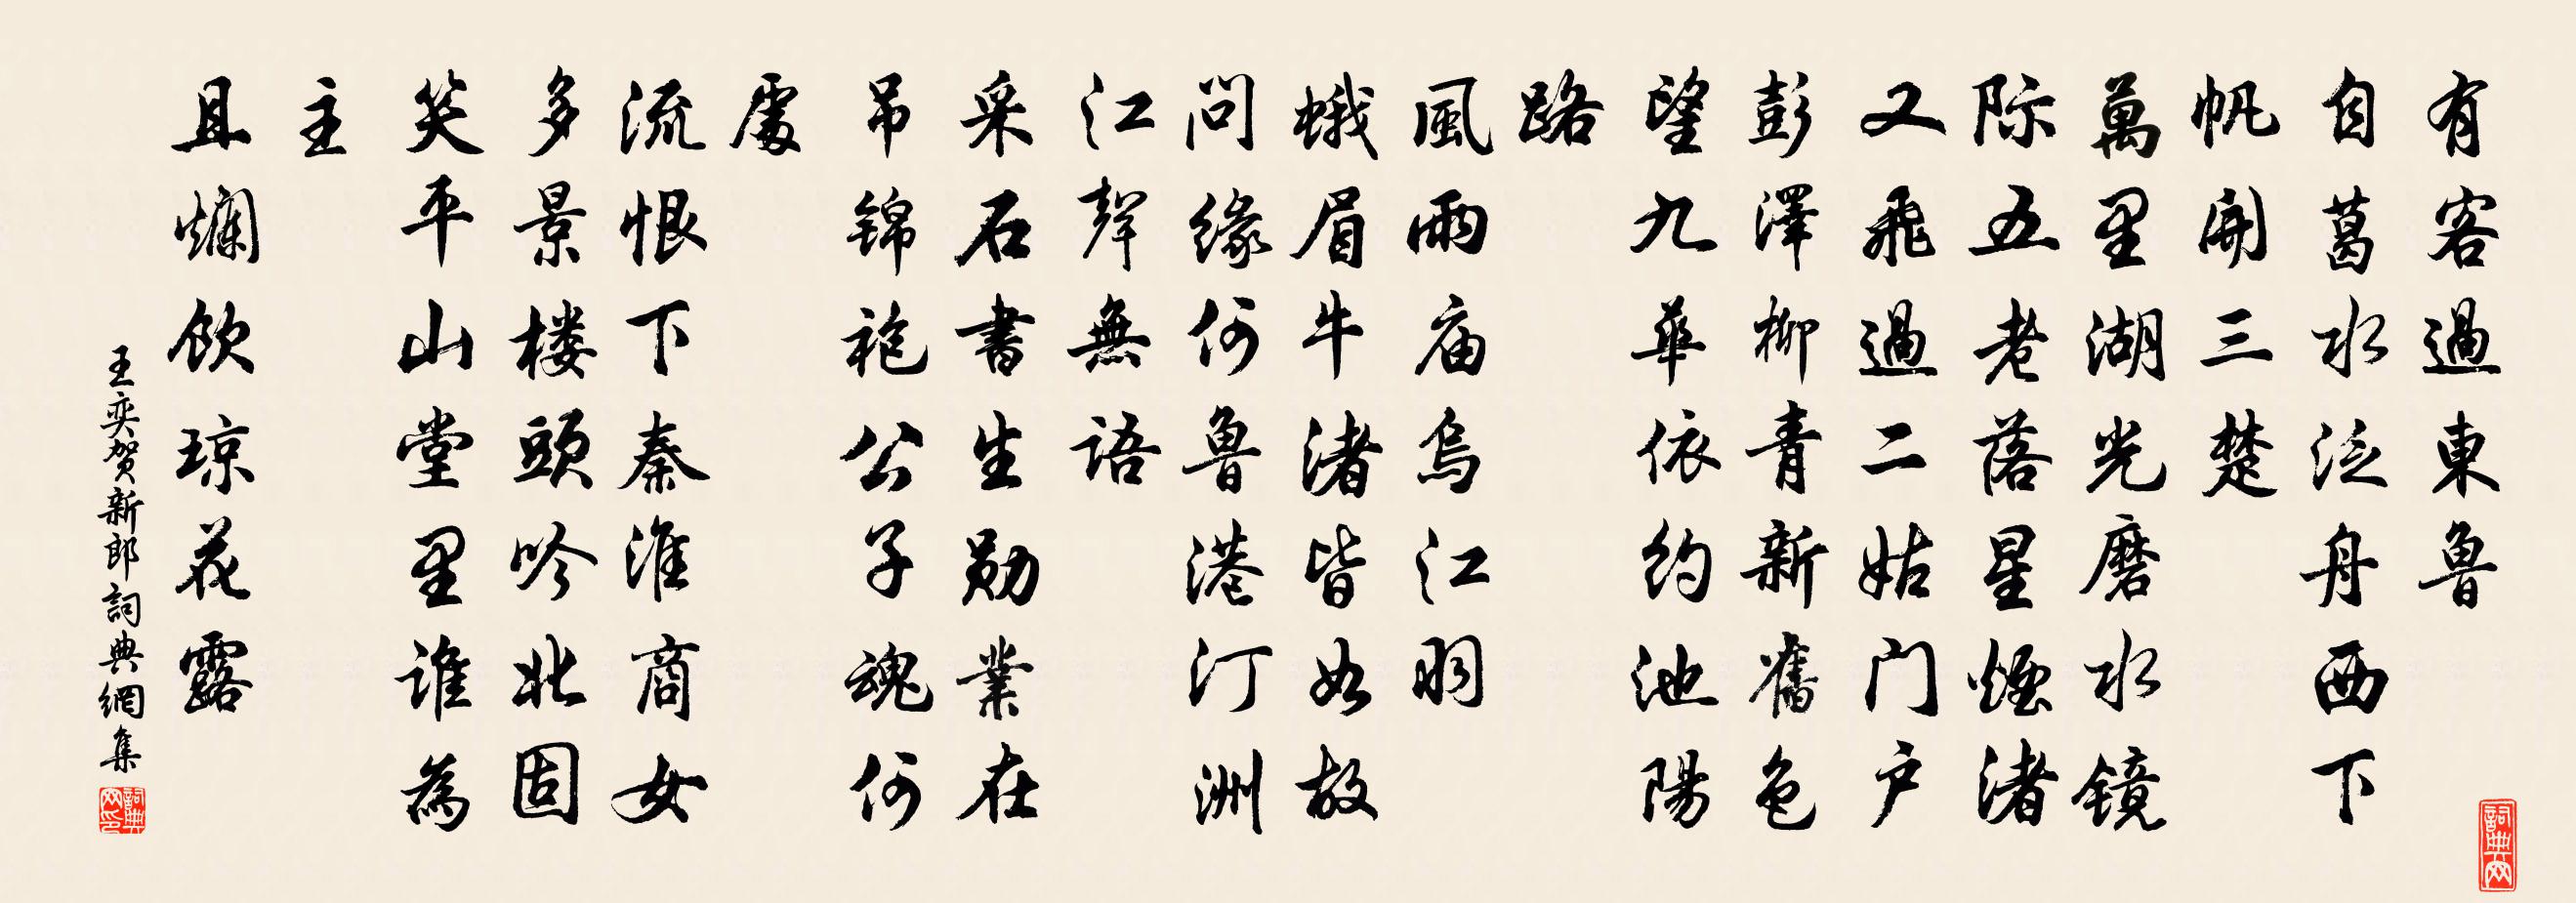 有客過東魯
自葛水泛舟西下
帆開三楚
萬里湖光磨水鏡
际五老落星煙渚
又飛過二姑门户
彭澤柳青新舊色
望九華依約池陽
路
風雨庙烏江羽
蛾眉牛渚皆如故
問缘何魯港汀洲
江聲無語
采石書生勋業在
吊锦袍公子魂何
處
流恨下秦淮商女
多景楼頭吟北固
笑平山堂里谁為
主
且爛飲琼花露
王奕贺新郎詞典網集
詞典网印
詞典网